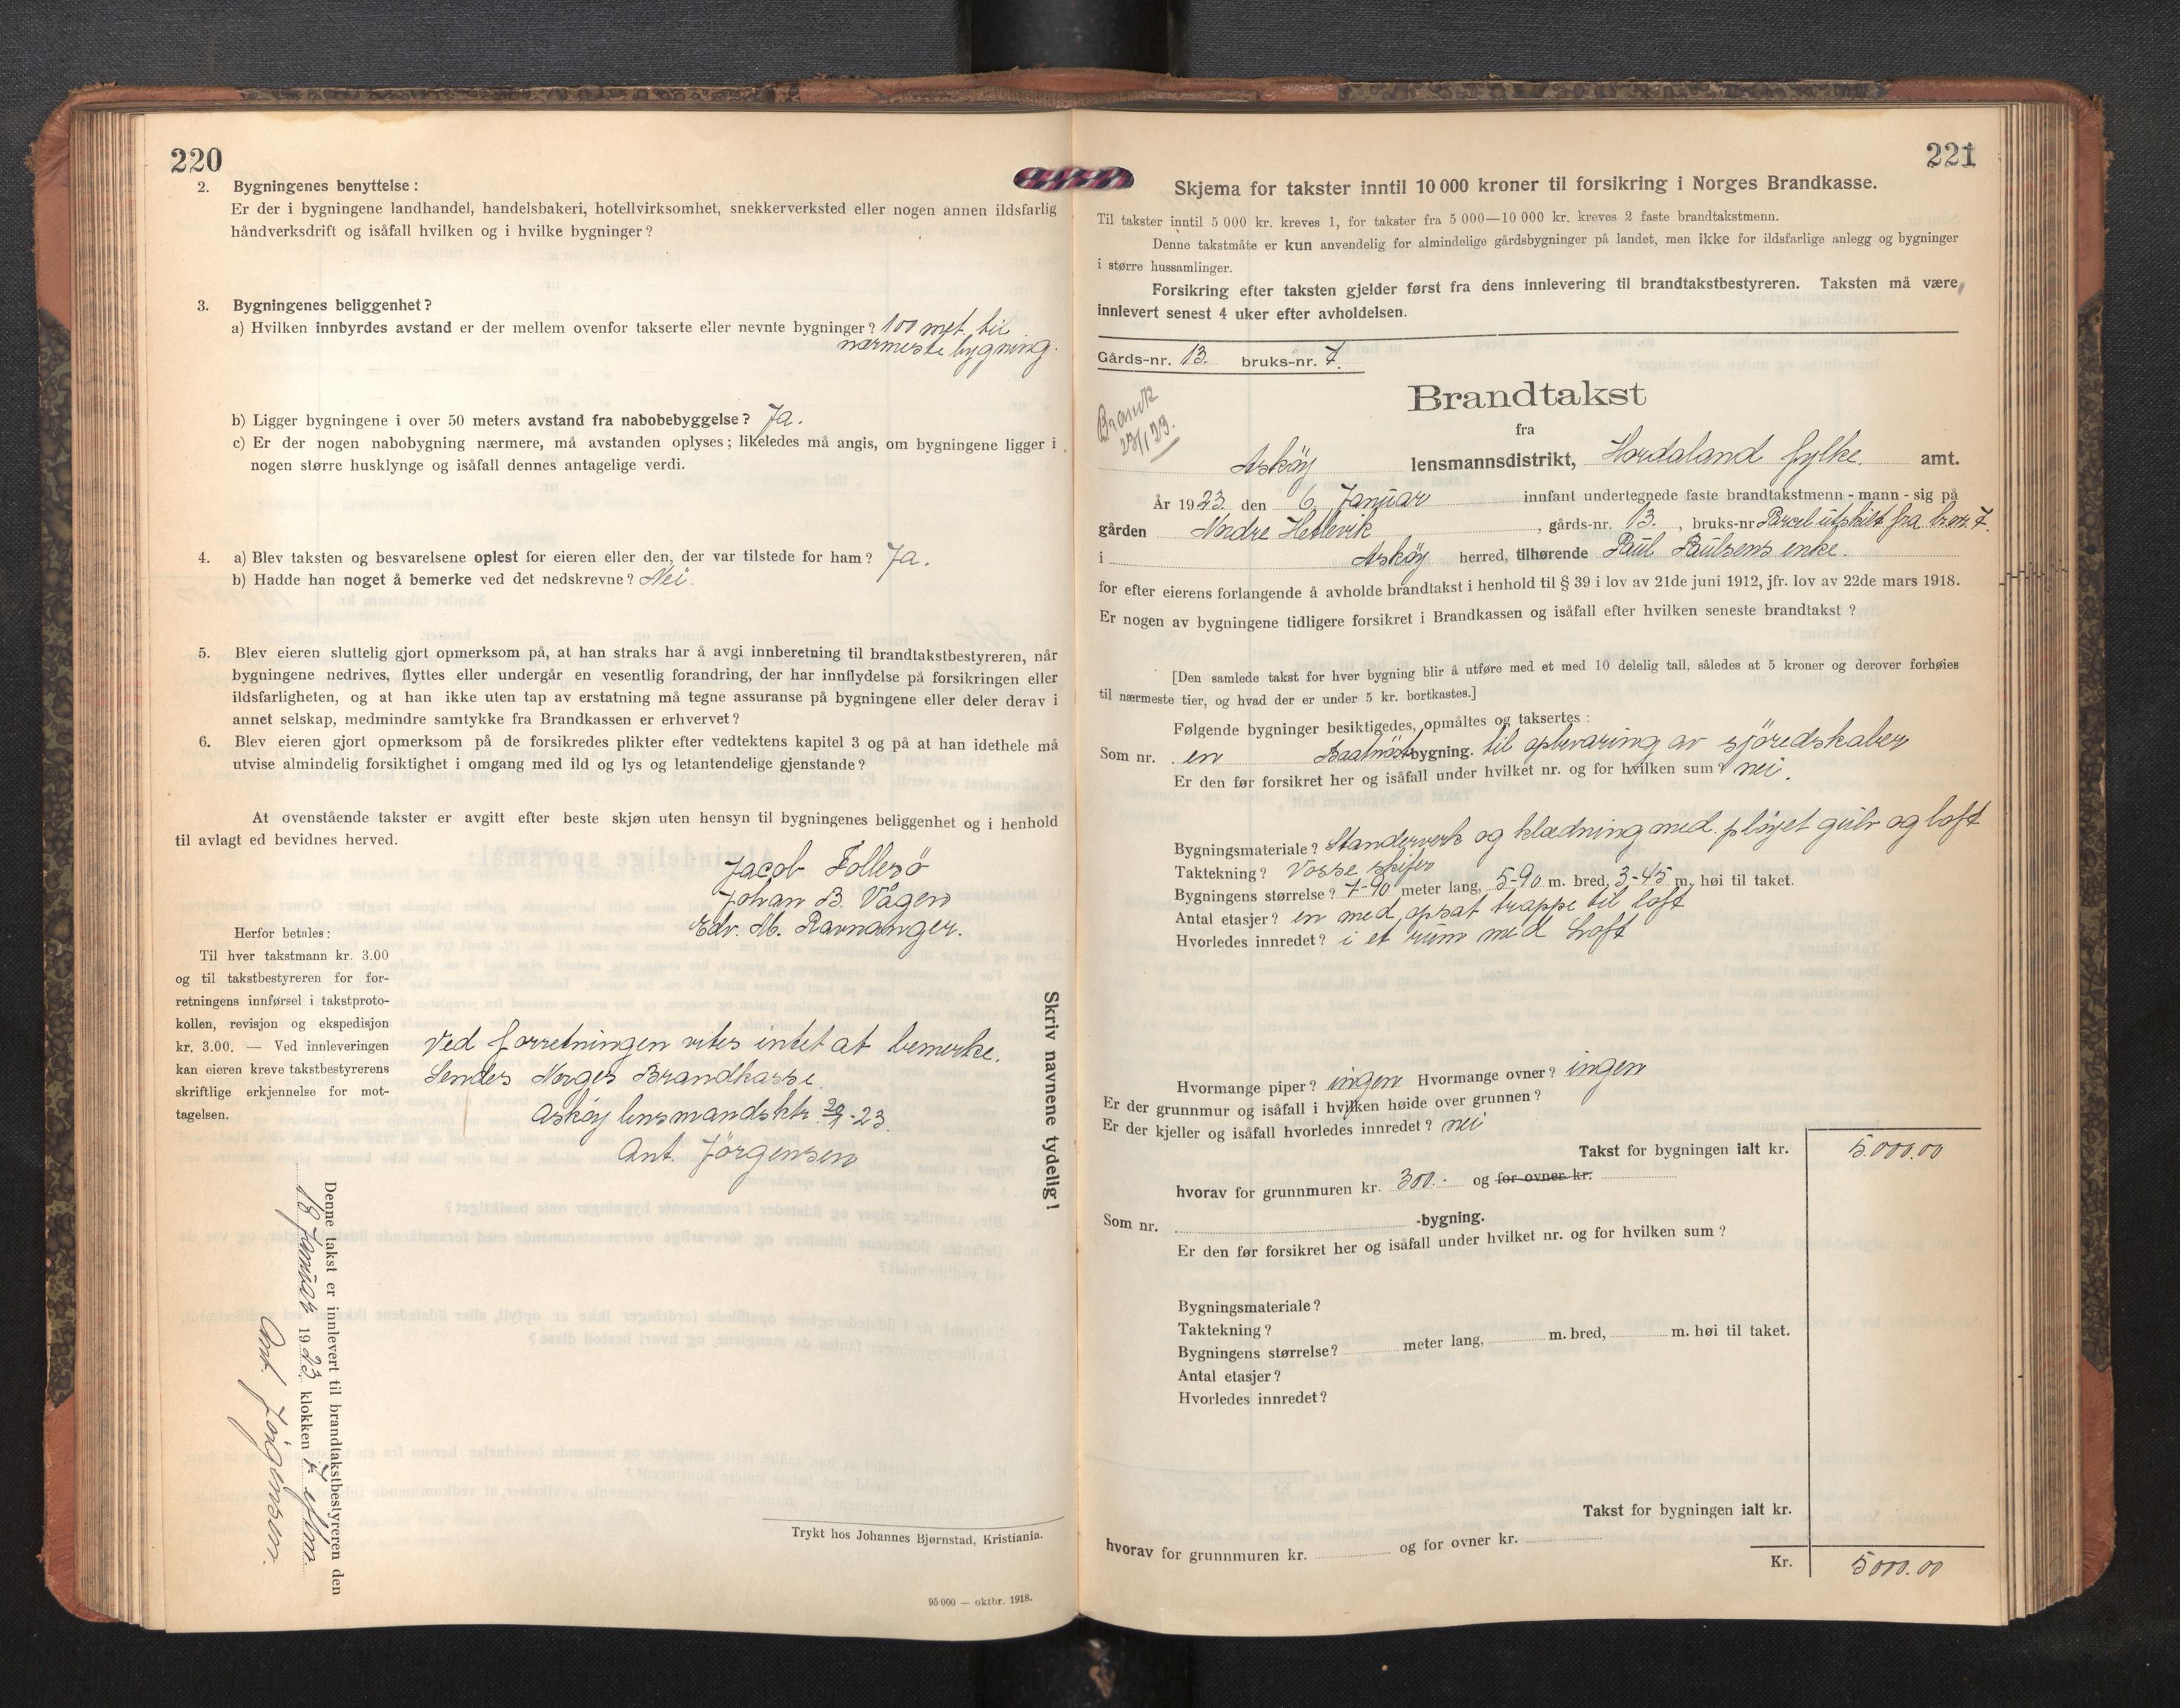 220
2. Bygningenes benyttelse:
Er der i bygningene landhandel, handelsbakeri, hotellvirksomhet, snekkerverksted eller nogen annen ildsfarlig
håndverksdrift og isåfall hvilken og i hvilke bygninger?
3. Bygningenes beliggenhet?
a) Hvilken innbyrdes avstand er der mellem ovenfor takserte eller nevnte bygninger? 100 met. til
nærmeste bygning.
b) Ligger bygningene i over 50 meters avstand fra nabobebyggelse? Ja.
c) Er der nogen nabobygning nærmere, må avstanden oplyses; likeledes må angis, om bygningene ligger i
nogen større husklynge og isåfall dennes antagelige verdi.
4. a) Blev taksten og besvarelsene oplest for eieren eller den, der var tilstede for ham? Ja.
b) Hadde han noget å bemerke ved det nedskrevne? Nei.
5. Blev eieren sluttelig gjort opmerksom på, at han straks har å avgi innberetning til brandtakstbestyreren, når
bygningene nedrives, flyttes eller undergår en vesentlig forandring, der har innflydelse på forsikringen eller
ildsfarligheten, og at han ikke uten tap av erstatning må tegne assuranse på bygningene eller deler derav i
annet selskap, medmindre samtykke fra Brandkassen er erhvervet?
6. Blev eieren gjort opmerksom på de forsikredes plikter efter vedtektens kapitel 3 og på at han idethele må
utvise almindelig forsiktighet i omgang med ild og lys og letantendelige gjenstande?
At ovenstående takster er avgitt efter beste skjøn uten hensyn til bygningenes beliggenhet og i henhold
til avlagt ed bevidnes herved.
Jacob Follesö
Johan B. Vågen
Edv. M. Ravnanger.
Herfor betales:
Til hver takstmann kr. 3.00
og til takstbestyreren for for-
retningens innførsel i takstproto-
kollen, revisjon og ekspedisjon
kr. 3.00. — Ved innleveringen
kan eieren kreve takstbestyrerens
skriftlige erkjennelse for mot-
tagelsen.
Ved forretningen vites intet at bemerke.
Sendes Norges Brandkasse.
Askøy lensmandsktr. 20/1-23.
Ant. Jörgensen
Skriv navnene tydelig!
Denne takst er innlevert til brandtakstbestyreren den
18 Januar 1923 klokken 7 eftm.
Ant. Jörgensen.
Trykt hos Johannes Bjørnstad, Kristiania.
95 000 — oktbr. 1918.
221
Skjema for takster inntil 10 000 kroner til forsikring i Norges Brandkasse.
Til takster inntil 5 000 kr. kreves 1, for takster fra 5 000—10 000 kr. kreves 2 faste brandtakstmenn.
Denne takstmåte er kun anvendelig for almindelige gårdsbygninger på landet, men ikke for ildsfarlige anlegg og bygninger
i større hussamlinger.
Forsikring efter taksten gjelder først fra dens innlevering til brandtakstbestyreren. Taksten må være
innlevert senest 4 uker efter avholdelsen.
Gårds-nr. 13. bruks-nr. 7.
Brandtakst
23/1 23.
fra
Askøy lensmannsdistrikt, Hordaland fylke. amt.
År 1923 den 6. Januar innfant undertegnede faste brandtakstmenn - mann - sig på
gården Nordre Hetlevik, gårds-nr. 13., bruks-nr Parcel utskilt fra br.nr. 7.
i Askøy herred, tilhørende Paul Paulsens enke.
for efter eierens forlangende å avholde brandtakst i henhold til § 39 i lov av 21de juni 1912, jfr. lov av 22de mars 1918.
Er nogen av bygningene tidligere forsikret i Brandkassen og isåfall efter hvilken seneste brandtakst?
[Den samlede takst for hver bygning blir å utføre med et med 10 delelig tall, således at 5 kroner og derover forhøies
til nærmeste tier, og hvad der er under 5 kr. bortkastes.]
Følgende bygninger besiktigedes, opmåltes og taksertes:
Som nr. en Baatnöst bygning. til opbevaring av sjöredskaber
Er den før forsikret her og isåfall under hvilket nr. og for hvilken sum? nei.
Bygningsmateriale? Standerverk og klædning med pløyet gulv og loft
Taktekning? Vosse skifer
Bygningens størrelse? 7-90 meter lang, 5-90 m. bred, 3-45 m. høi til taket.
Antal etasjer? en med opsat trappe til loft
Hvorledes innredet? i et rum med Loft
Hvormange piper? ingen Hvormange ovner? ingen
Er der grunnmur og isåfall i hvilken høide over grunnen?
Er der kjeller og isåfall hvorledes innredet? nei
Takst for bygningen ialt kr. 5.000.00
hvorav for grunnmuren kr. 300.- og for ovner kr.
Som nr. -bygning.
Er den før forsikret her og isåfall under hvilket nr. og for hvilken sum?
Bygningsmateriale?
Taktekning?
Bygningens størrelse? meter lang, m. bred, m. høi til taket.
Antal etasjer?
Hvorledes innredet?
Takst for bygningen ialt kr.
hvorav for grunnmuren kr. og for ovner kr.
Kr. 5000.00